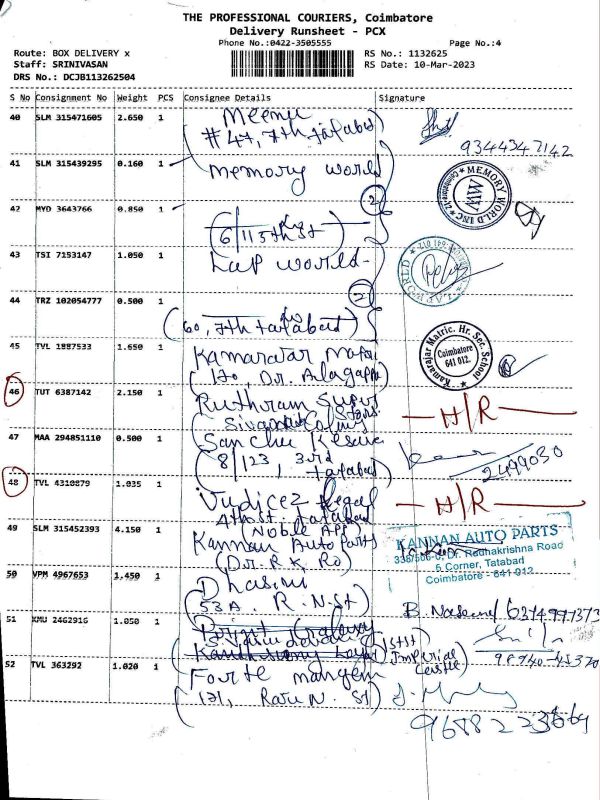 THE PROFESSIONAL COURIERS, Coimbatore
Delivery Runsheet - PCX
Phone No.:0422-3505555 Page No.:4
Route: BOX DELIVERY x RS No.: 1132625
Staff: SRINIVASAN RS Date: 10-Mar-2023
DRS No.: DCJB113262504
S No Consignment No Weight PCS Consignee Details Signature
40 SLM 315471605 2.650 1 Meenu
# 47, 7th tatabad) 9344347142
41 SLM 315439295 0.160 1 memory world
MEMORY WORLD INC
MW
42 MYD 3643766 0.850 1 2
(6/11 5th St)
43 TSI 7153147 1.050 1 Lap world
44 TRZ 102054777 0.500 1 2
(60, 7th tatabad)
45 TVL 1887533 1.650 1 Kamarajar Matri
(170, Dr. Alagappa)
Kamarajar Matric. Hr. Sec. School
Coimbatore
641 012.
46 TUT 6387142 2.150 1 Ruthram Super
Stars H/R
47 MAA 294851110 0.500 1 Sanchu
(8/123, 3rd tatabad) 2499030
48 TVL 4310879 1.035 1 legal H/R
4th St. tatabad
(Noble Apt)
49 SLM 315452393 4.150 1 Kannan Auto Parts
(Dr. R.K. Ro)
KANNAN AUTO PARTS
338/506-0, Dr. Radhakrishna Road
6 Corner, Tatabad
Coimbatore - 641 012
50 VPM 4967653 1.450 1 Dhasini
(53A. R.N.St)
51 KMU 2462916 1.050 1
Imperial
Castle
52 TVL 363292 1.020 1 Forte
(121, Raju N. St)
9688223669